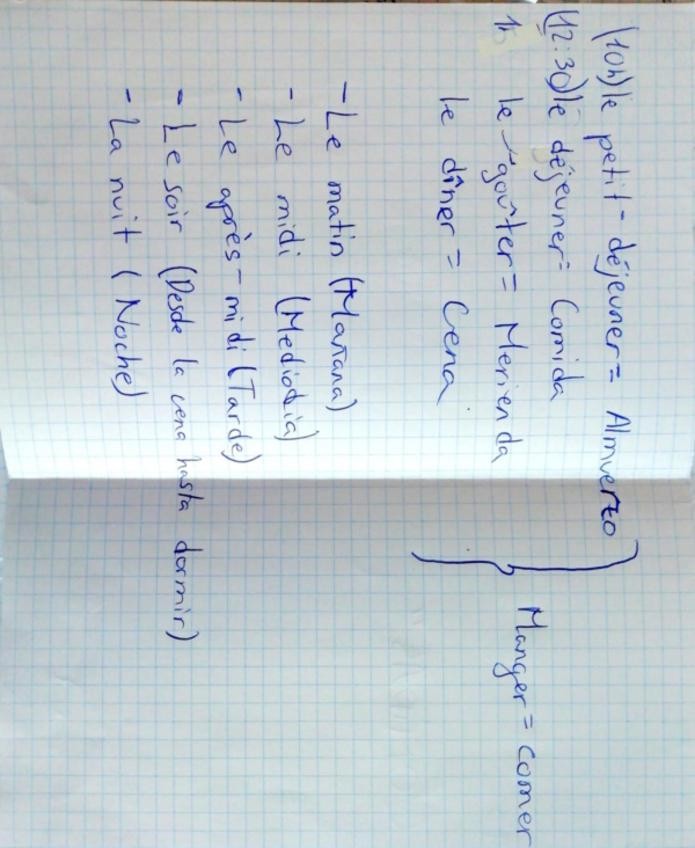 (10h) le petit-déjeuner = Almuerzo
(12:30) le déjeuner = Comida
le goûter = Merienda
le dîner = Cena
Manger = comer
- Le matin (Mañana)
- Le midi (Mediodía)
- Le après-midi (Tarde)
- Le soir (Desde la cena hasta dormir)
- La nuit (Noche)